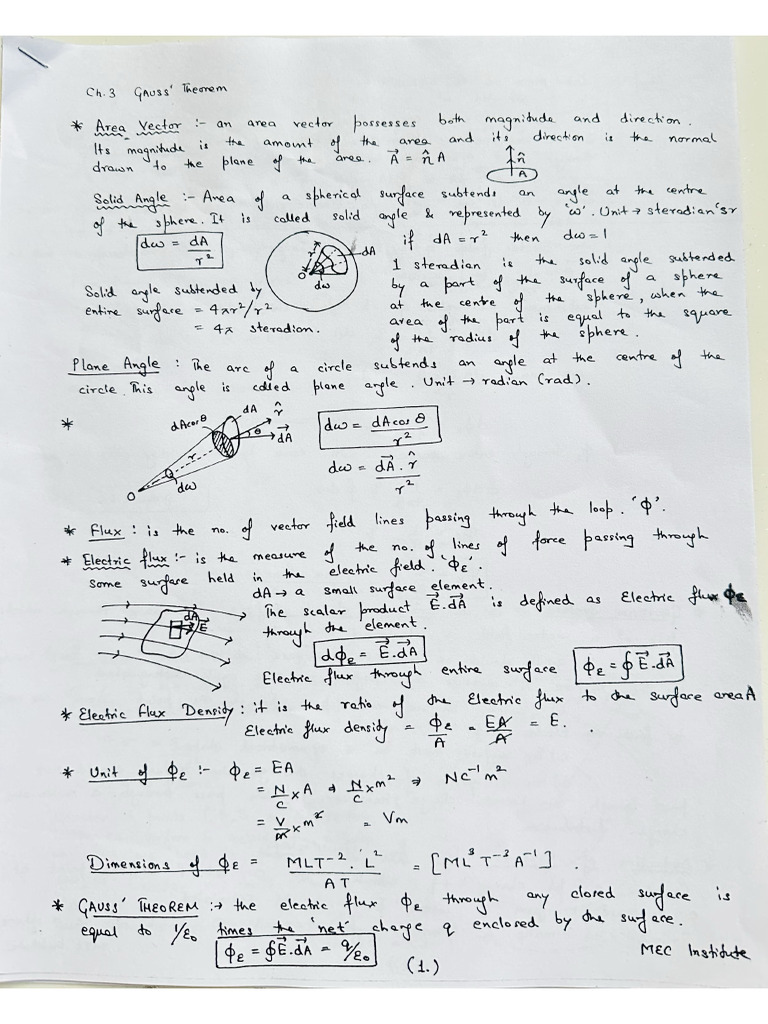 Ch.3 GAUSS' Theorem
* Area Vector :- an area vector possesses both magnitude and direction.
Its magnitude is the amount of the area and its direction is the normal
drawn to the plane of the area. A⃗ = n̂ A
n̂
A
Solid Angle :- Area of a spherical surface subtends an angle at the centre
of the sphere. It is called solid angle & represented by 'ω'. Unit → steradian 'sr
dω = dA/r²
r
dA
O
dω
if dA = r² then dω = 1
1 steradian is the solid angle subtended
by a part of the surface of a sphere
at the centre of the sphere, when the
area of the part is equal to the square
of the radius of the sphere.
Solid angle subtended by
entire surface = 4πr²/r²
= 4π steradion.
Plane Angle : The arc of a circle subtends an angle at the centre of the
circle. This angle is called plane angle. Unit → radian (rad).
*
dA cosθ
dA
r̂
θ
dA⃗
r
dω
O
dω = dA cos θ/r²
dω = dA⃗ . r̂/r²
* Flux : is the no. of vector field lines passing through the loop. 'ϕ'.
* Electric flux :- is the measure of the no. of lines of force passing through
some surface held in the electric field. 'ϕE'.
dA → a small surface element.
dA⃗
E⃗
The scalar product E⃗.dA⃗ is defined as Electric flux ϕE
through the element.
dϕE = E⃗.dA⃗
Electric flux through entire surface ϕE = ∮E⃗.dA⃗
* Electric Flux Density : it is the ratio of the Electric flux to the surface area A
Electric flux density = ϕE/A = EA/A = E.
* Unit of ϕE :- ϕE = EA
= N/C × A ⇒ N/C × m² ⇒ NC⁻¹m²
= V/m × m² = Vm
Dimensions of ϕE = MLT⁻². L²/AT = [ML³T⁻³A⁻¹].
* GAUSS' THEOREM :→ the electric flux ϕE through any closed surface is
equal to 1/ε0 times the 'net' charge q enclosed by the surface.
ϕE = ∮E⃗.dA⃗ = q/ε0
(1.)
MEC Institute